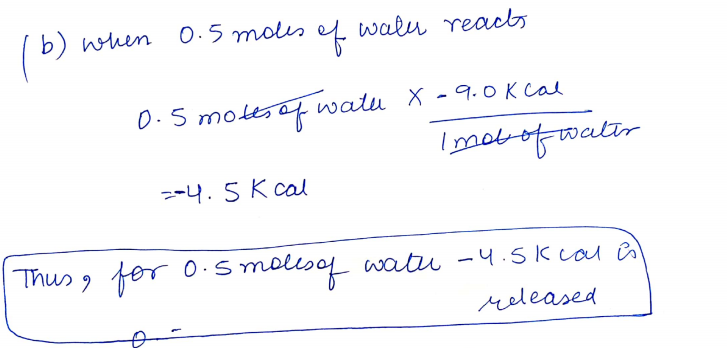 (b) when 0.5 moles of water reacts
0.5 moles of water X -9.0 Kcal
1 mol of water
=-4.5 Kcal
Thus, for 0.5 moles of water -4.5 Kcal is
released